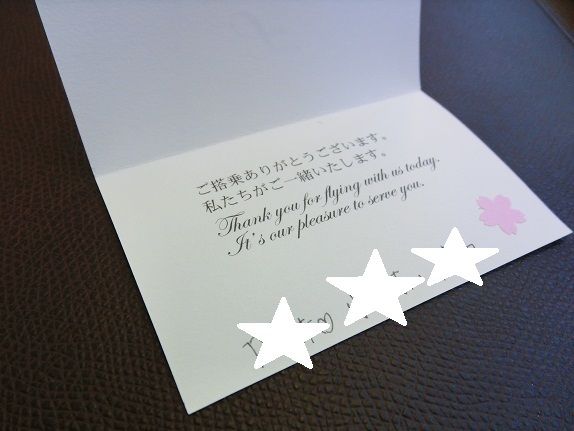 ご搭乗ありがとうございます。
私たちがご一緒いたします。
Thank you for flying with us today.
It's our pleasure to serve you.